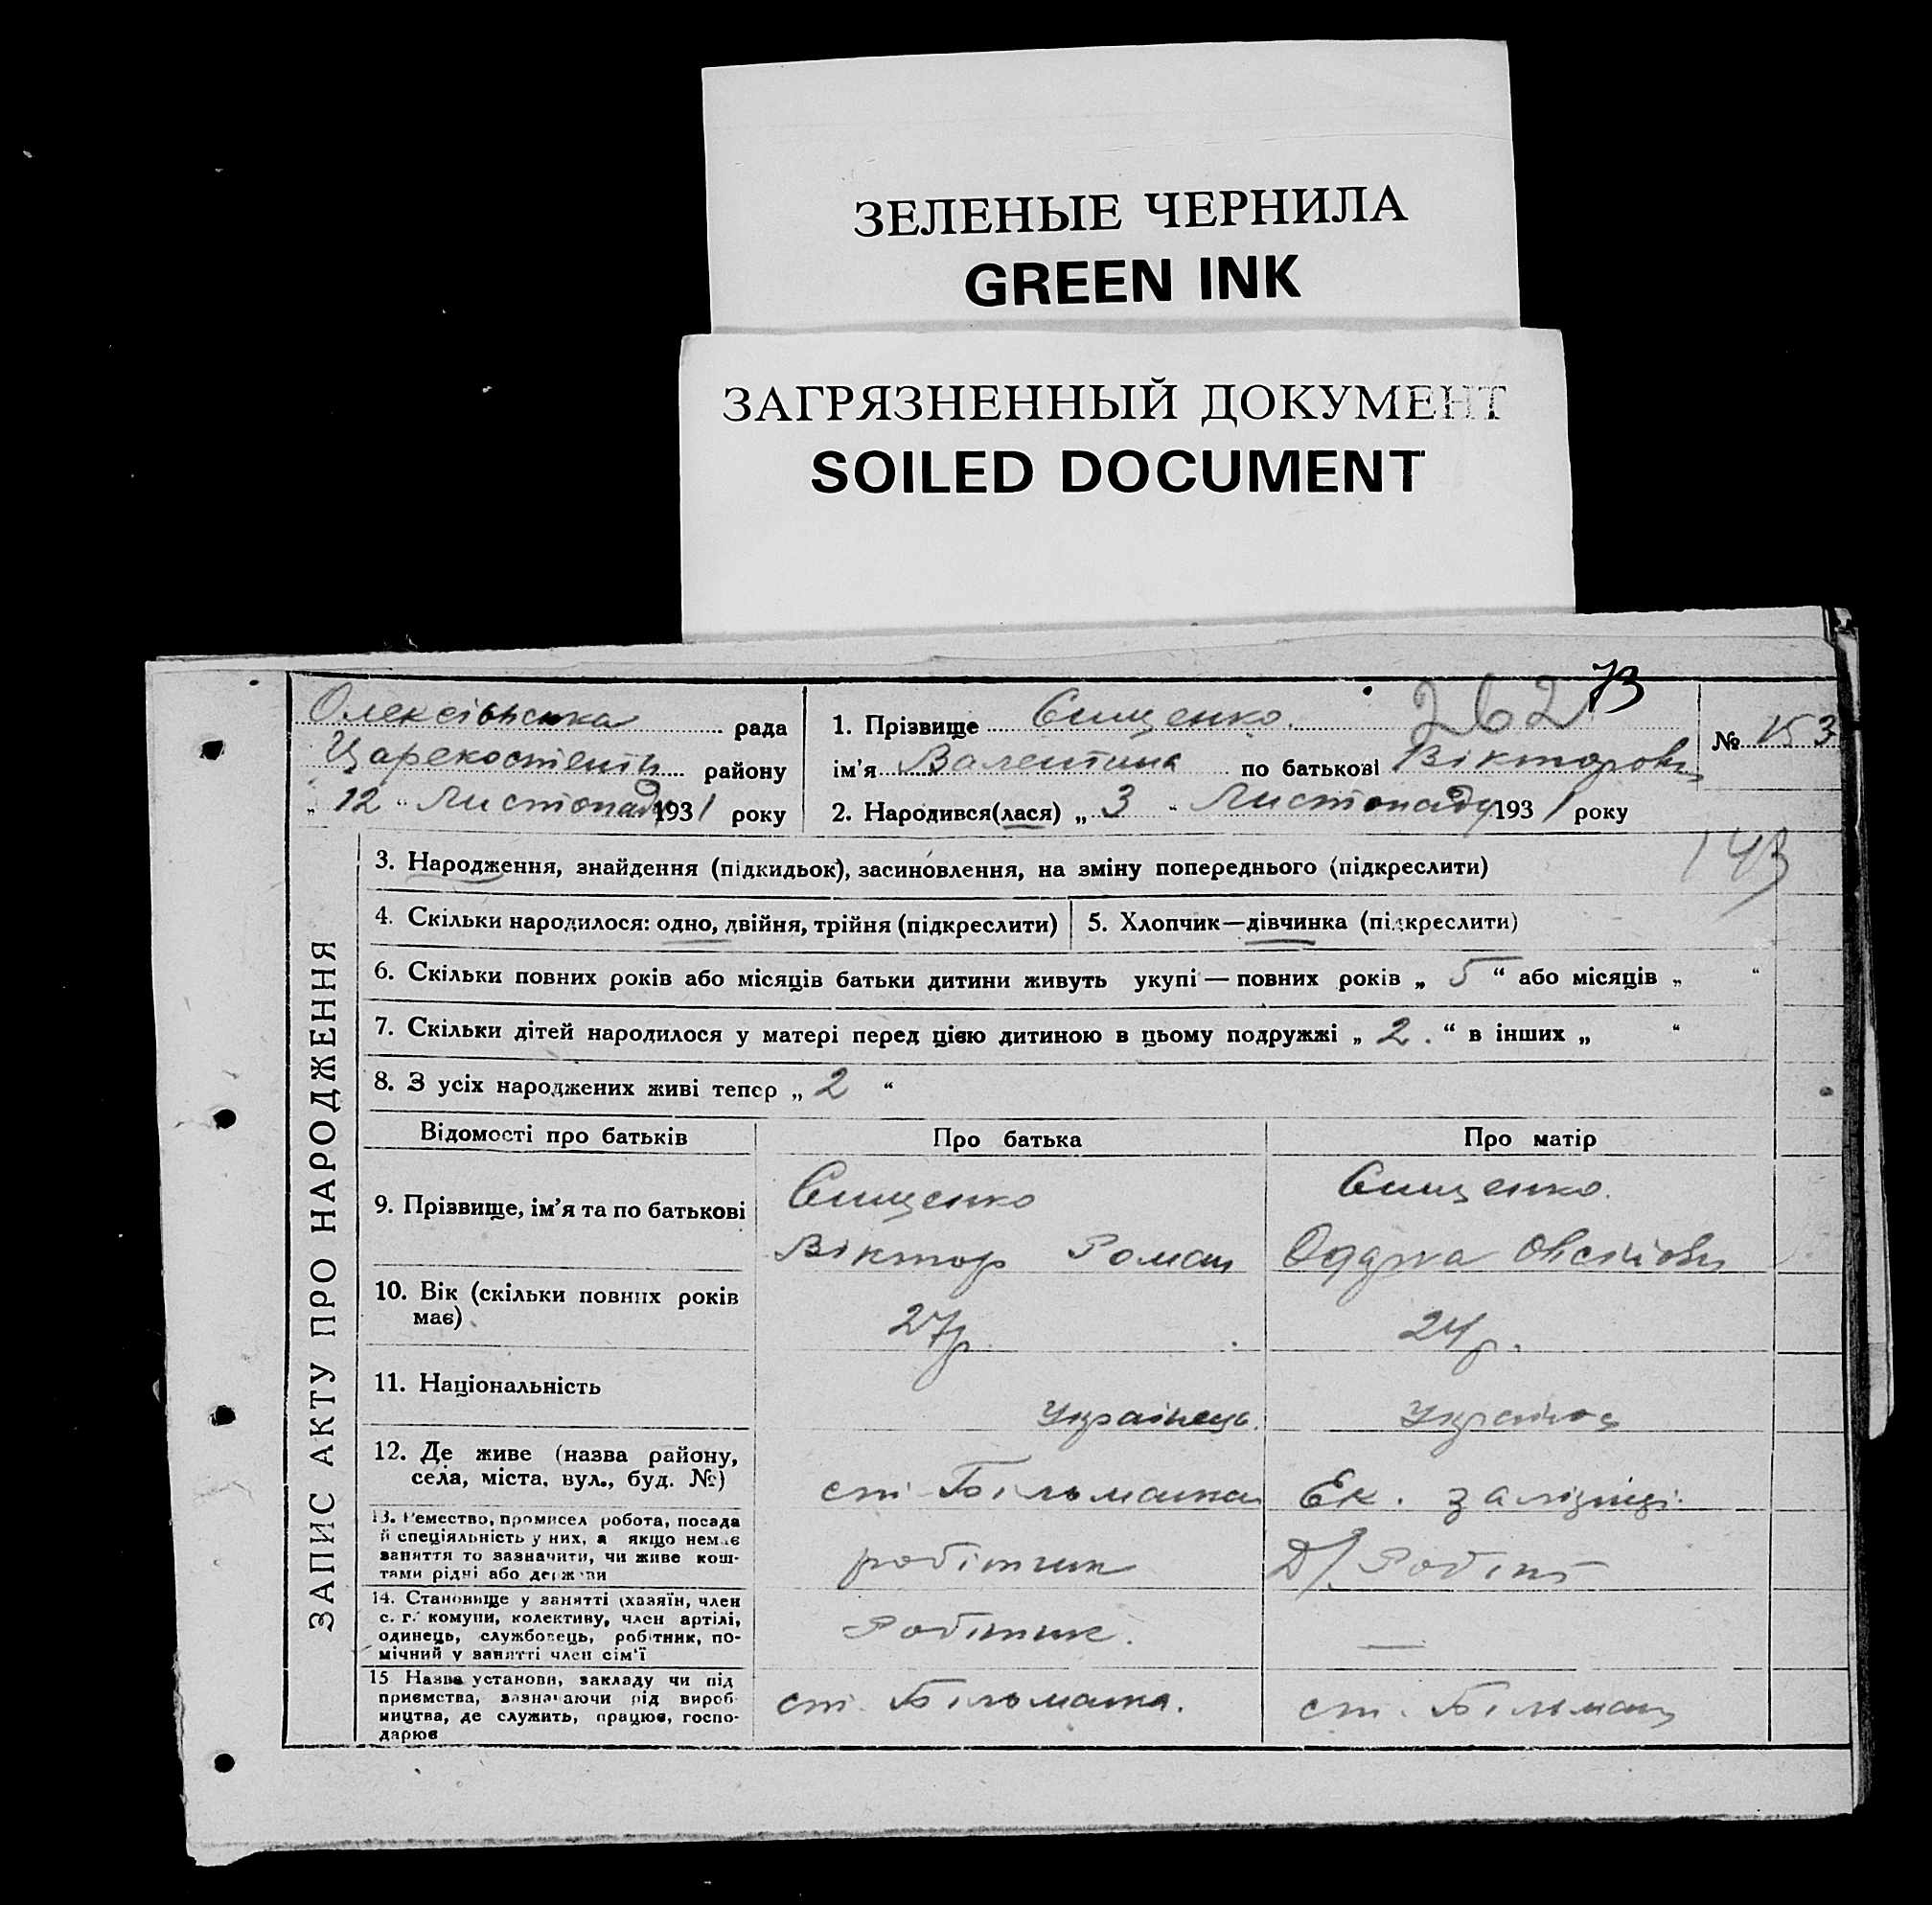 ЗЕЛЕНЫЕ ЧЕРНИЛА
GREEN INK
ЗАГРЯЗНЕННЫЙ ДОКУМЕНТ
SOILED DOCUMENT
262 73
Олексієвська рада
району
„ 12 " Листопаду 1931 року
1. Прізвище Сищенко.
ім'я Валентина по батькові Вікторовн
2. Народився(лася) „ 3 " Листопаду 1931 року
№ 153
143
ЗАПИС АКТУ ПРО НАРОДЖЕННЯ
3. Народження, знайдення (підкидьок), засиновлення, на зміну попереднього (підкреслити)
4. Скільки народилося: одно, двійня, трійня (підкреслити)
5. Хлопчик—дівчинка (підкреслити)
6. Скільки повних років або місяців батьки дитини живуть укупі — повних років „ 5 “ або місяців „ “
7. Скільки дітей народилося у матері перед цією дитиною в цьому подружжі „ 2. “ в інших „ “
8. З усіх народжених живі тепер „ 2 “
Відомості про батьків Про батька Про матір
9. Прізвище, ім'я та по батькові
Сищенко
Віктор Роман
Сищенко.
10. Вік (скільки повних років
має)
27р.
24р.
11. Національність
Українець.
12. Де живе (назва району,
села, міста, вул., буд. №)
ст. Більманка
Ек. залізниці.
13. Ремество, промисел робота, посада
й спеціяльність у них, а якщо немає
заняття то зазначити, чи живе кош-
тами рідні або держави
робітник
Д/. Робітн
14. Становище у занятті (хазяїн, член
с. г. комуни, колективу, член артілі,
одинець, службовець, робітник, по-
мічний у занятті член сім'ї
Робітник.
—
15 Назва установи, закладу чи під
приємства, зазначаючи рід вироб-
ництва, де служить, працює, госпо-
дарює
ст. Більманка.
ст. Більман